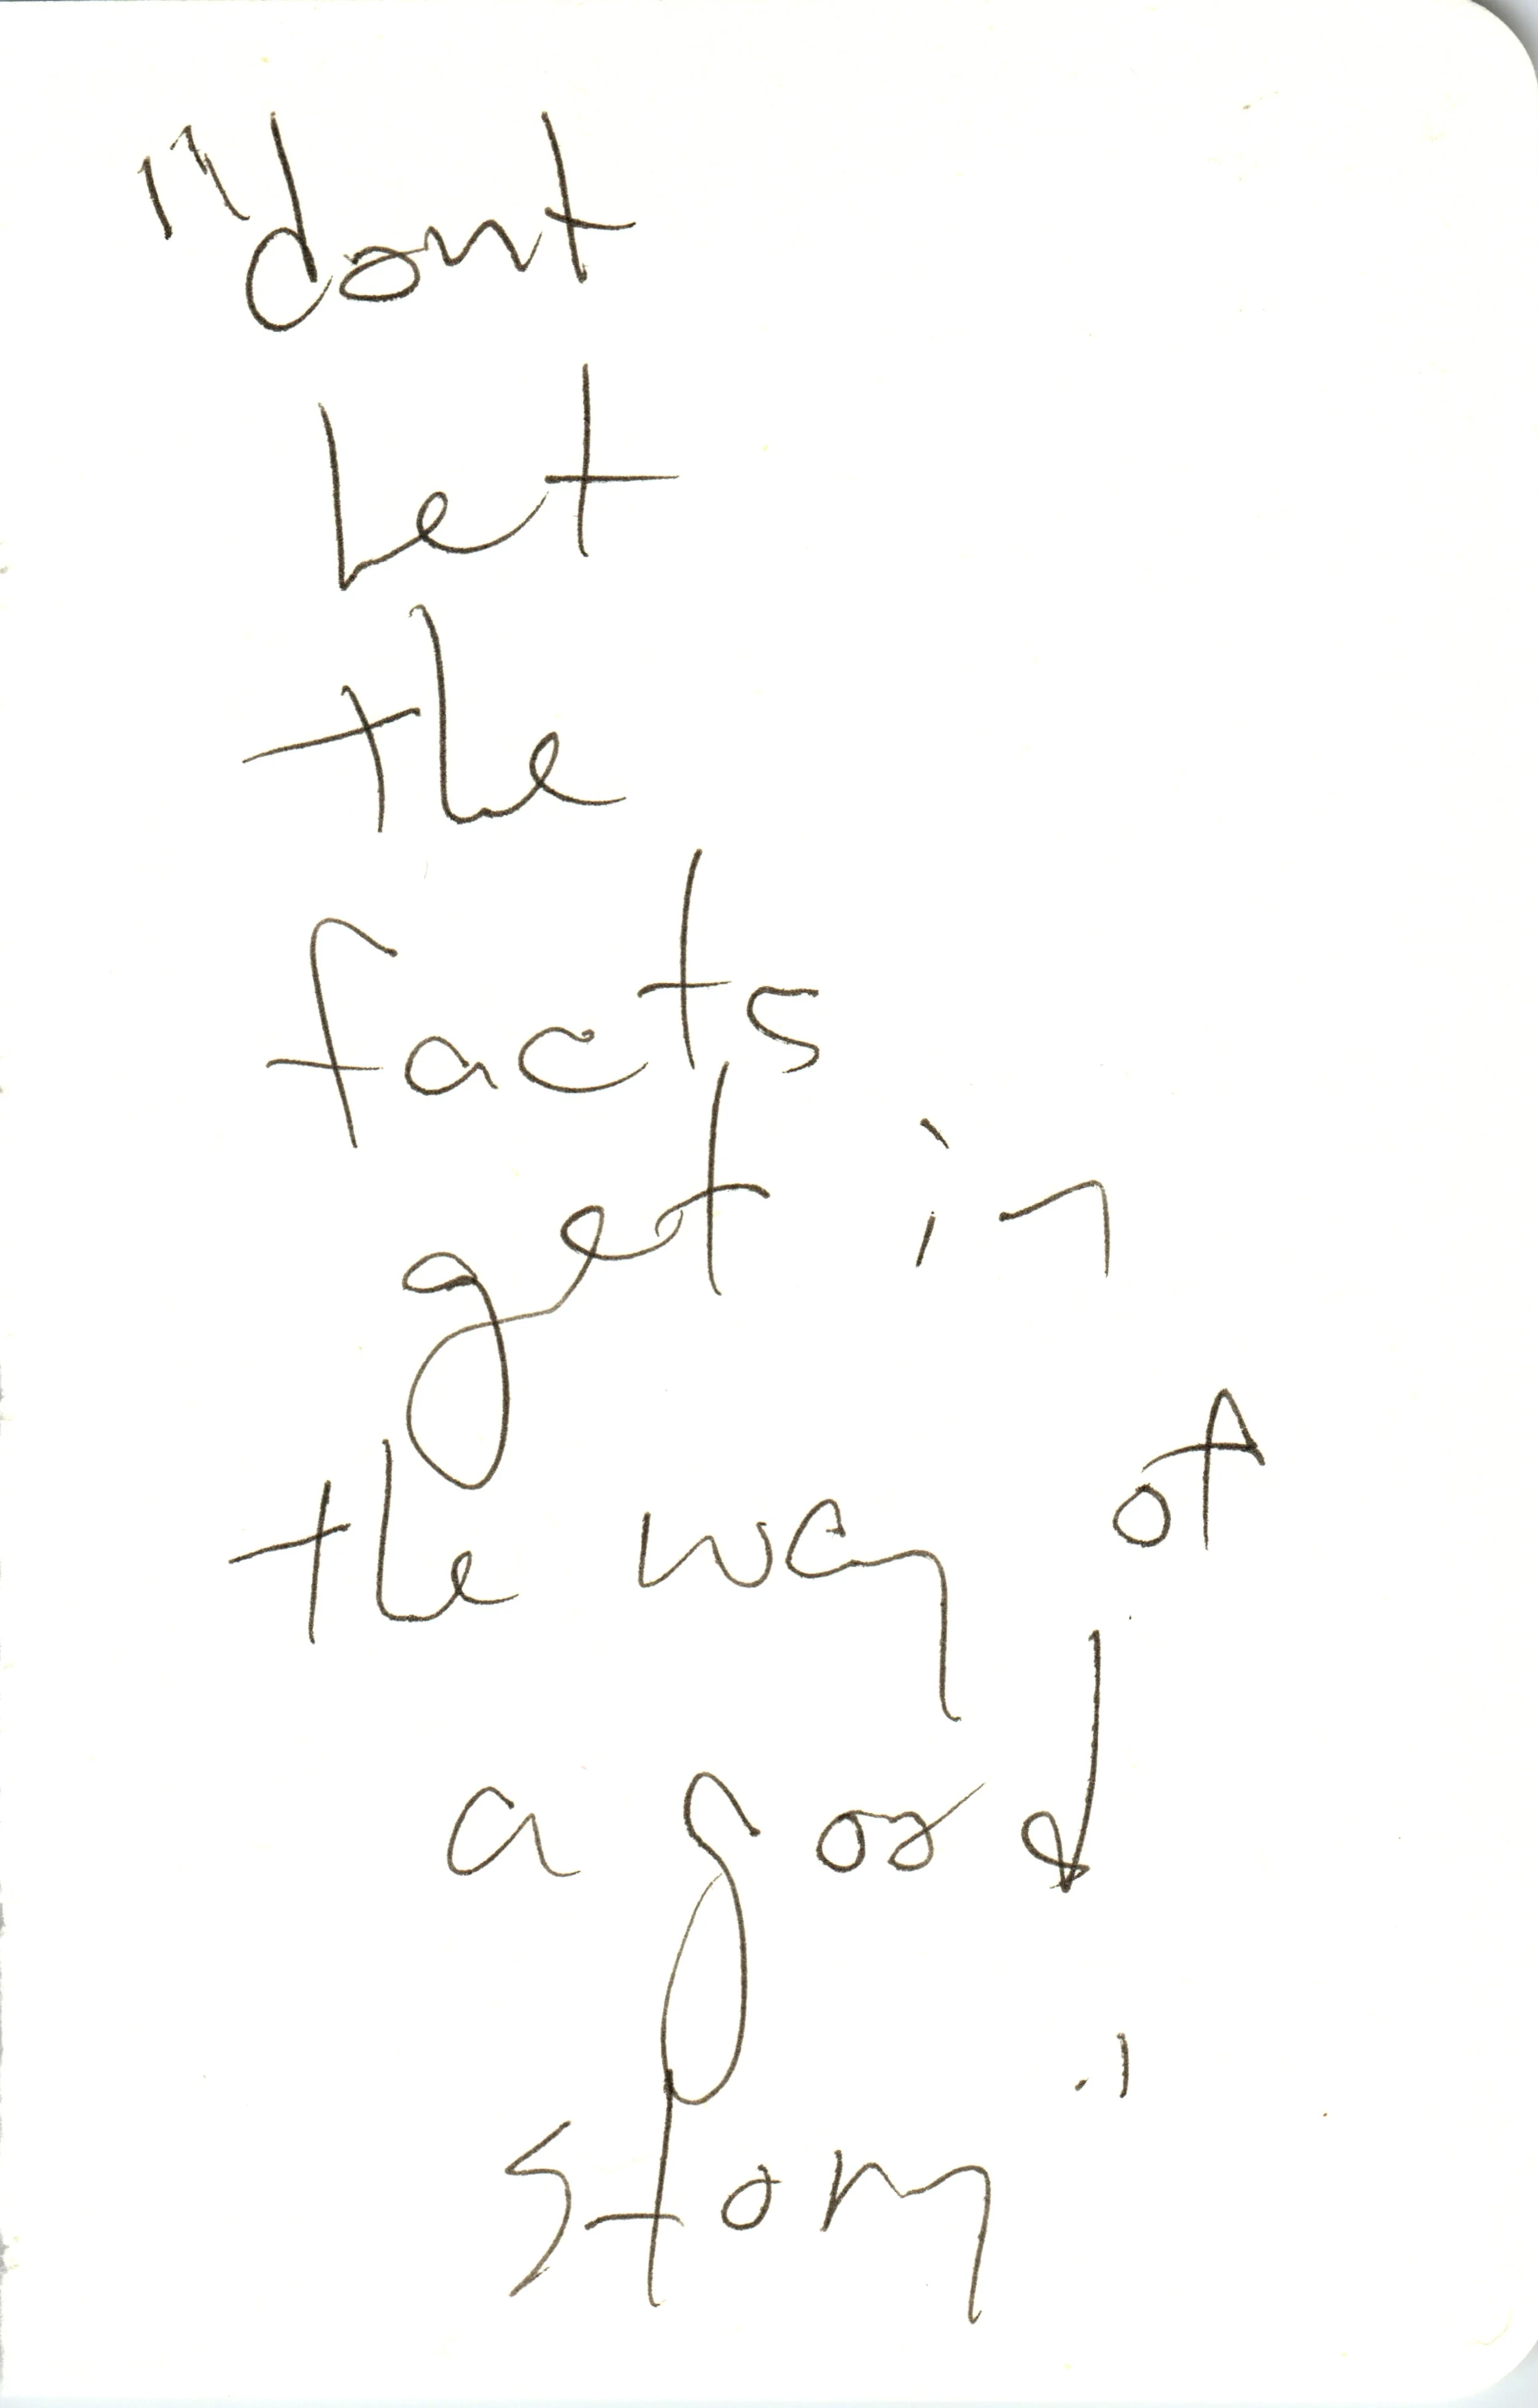 "dont
Let
the
facts
get in
the way of
a good
story"